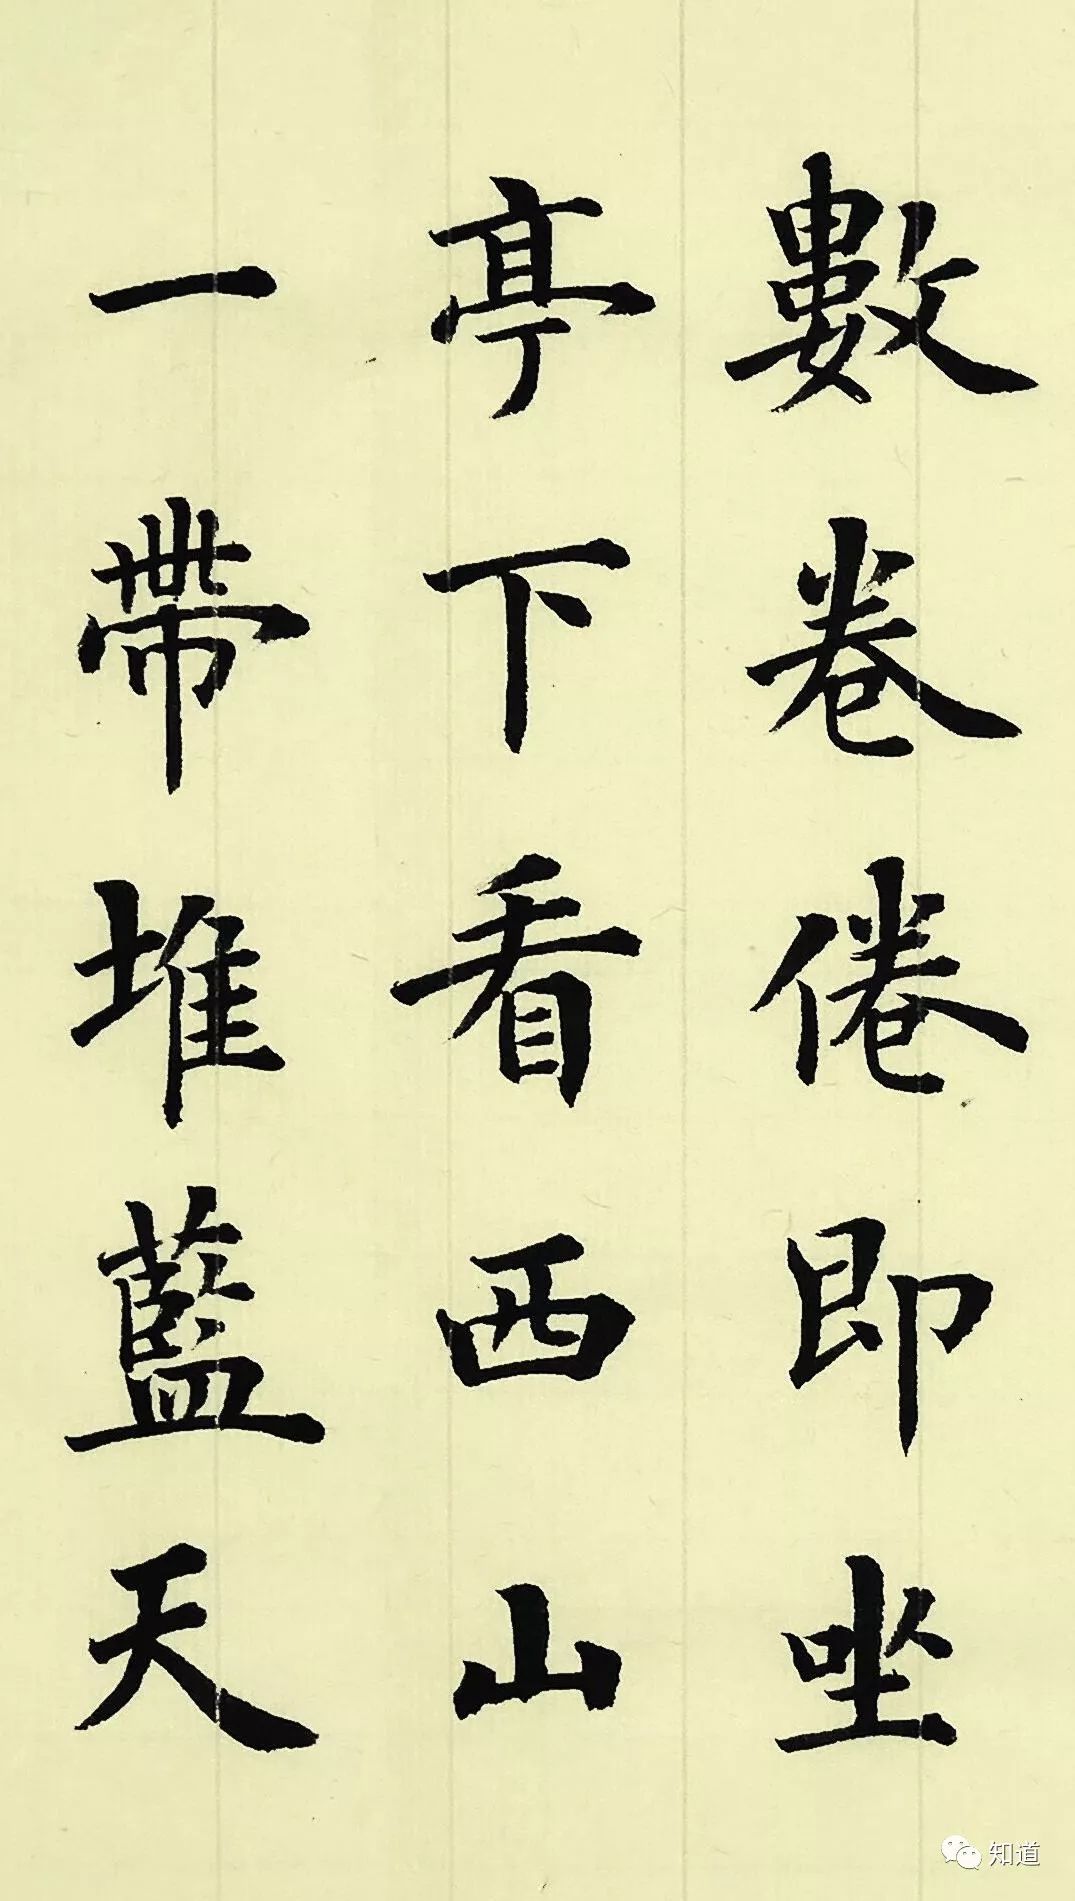 數卷倦即坐
亭下看西山
一帶堆藍天
知道